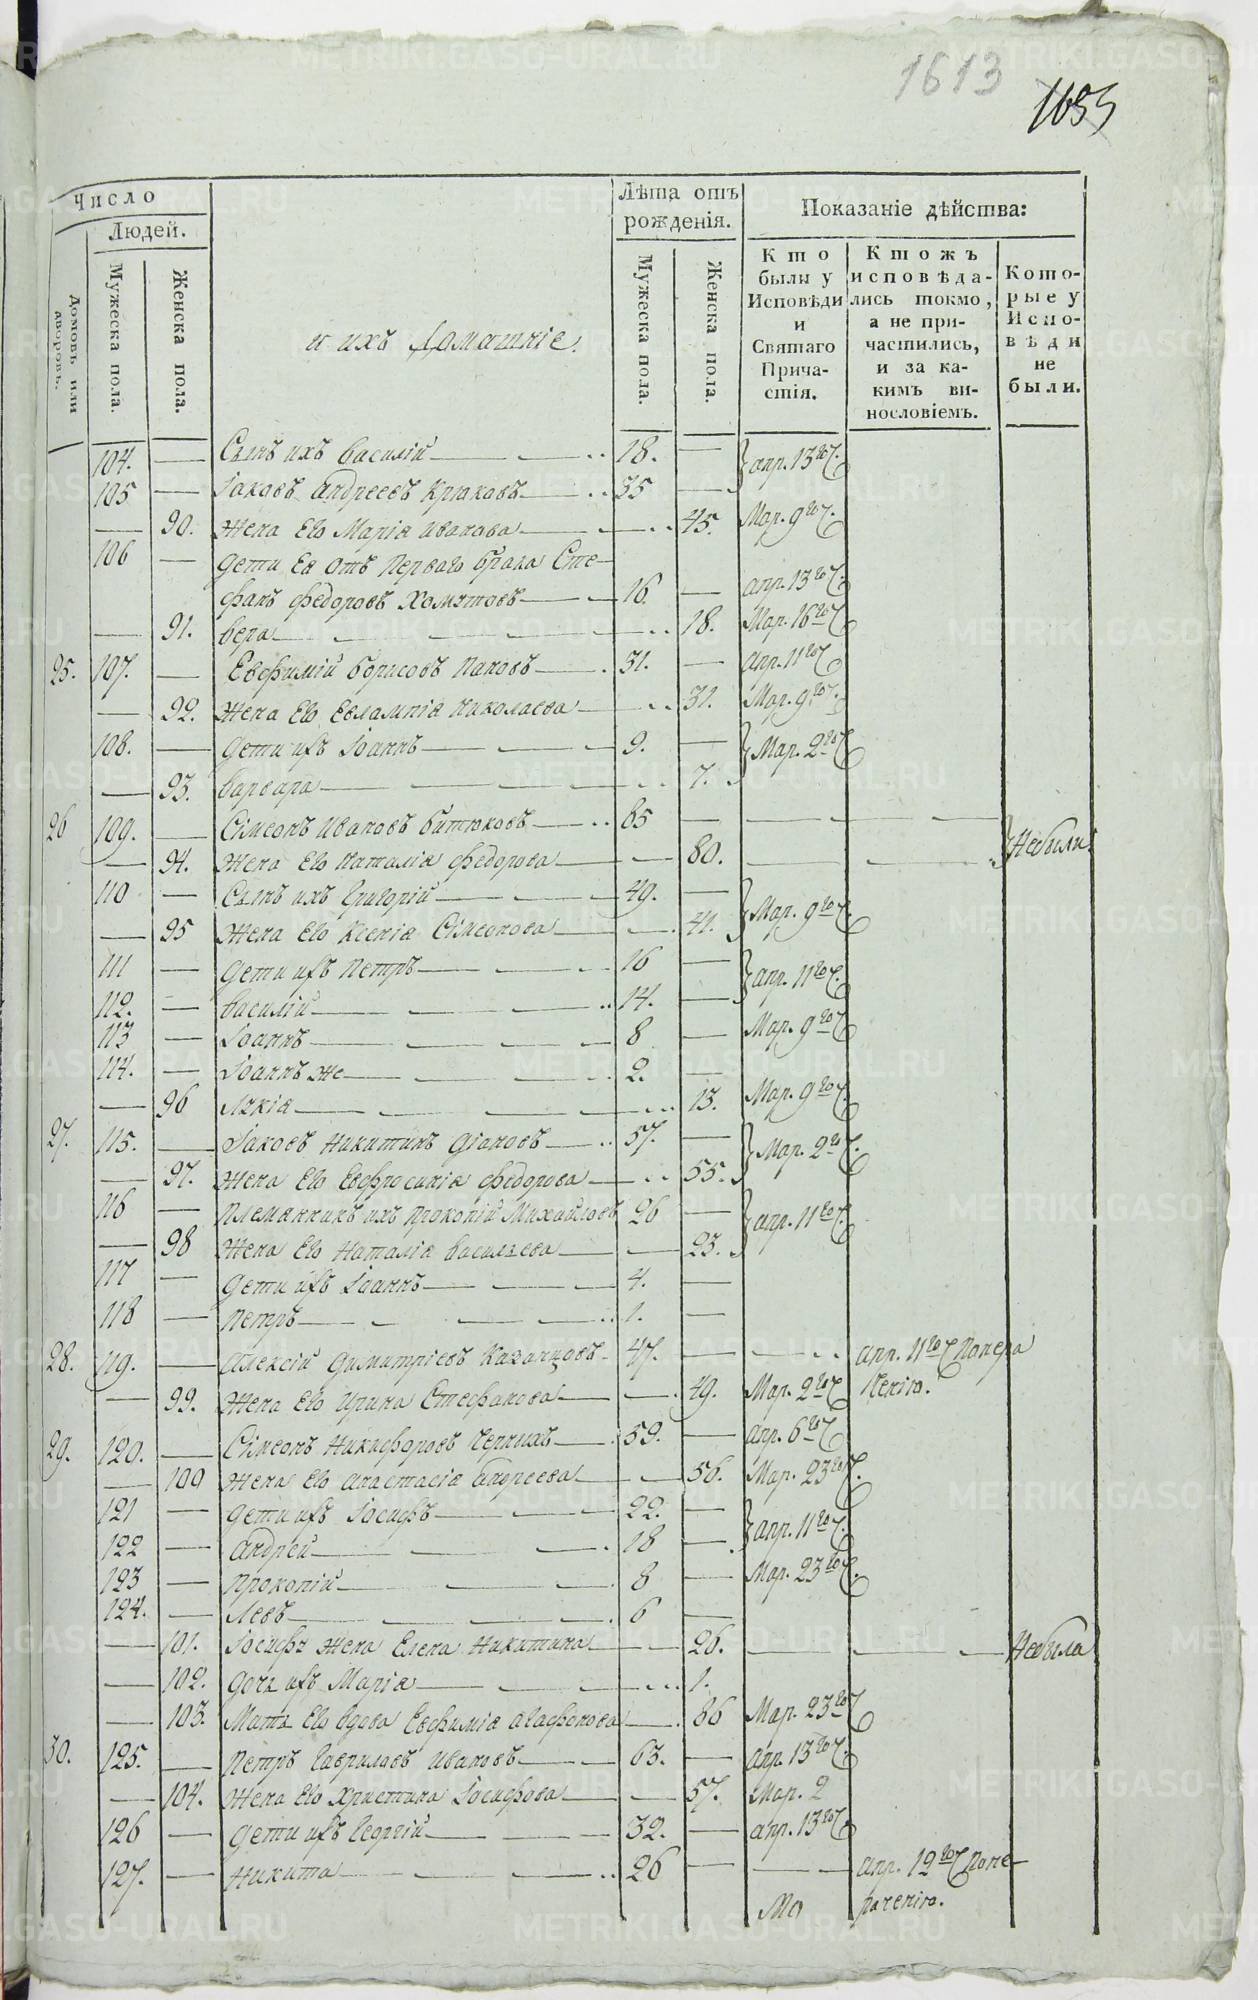 1613
1655
Число
Людей.
Домовъ или дворовъ.
Мужеска пола.
Женска пола.
и ихъ домашніе.
Лѣта отъ рожденія.
Мужеска пола.
Женска пола.
Показаніе дѣйства:
Кто были у Исповѣди и Святаго Причастія.
Ктожъ исповѣдались токмо, а не причастились, и за какимъ винословіемъ.
Которые у Исповѣди не были.
104. — Сынъ ихъ Василій 18. — Апр. 13го
105 — Іаковъ Андреевъ Крюковъ 35 —
— 90. Жена Его Марія Иванова 45. Мар. 9го
106 — Дети Ея отъ Перваго брака Сте-
фанъ Федоровъ Хомутовъ 16. — Апр. 13го
— 91. Вера 18. Мар. 16го
25. 107. — Евфимій Борисовъ Пановъ 31. — Апр. 11го
— 92. Жена Его Евлампія Николаева 31. Мар. 9го
108. — Дети ихъ Іоаннъ 9. — Мар. 2го
— 93. Варвара 7.
26 109. — Сімеонъ Ивановъ Битюковъ 85 — Небыли
— 94. Жена Его Наталія Федорова 80.
110 — Сынъ ихъ Григорій 49. — Мар. 9го
— 95 Жена Его Ксенія Сімеонова 41.
111 — Дети ихъ Петръ 16 — Апр. 11го
112. — Василій 14. —
113 — Іоаннъ 8 — Мар. 9го
114. — Іоаннъ же 2. —
— 96 Лукія 13. Мар. 9го
27. 115. — Іаковъ Никитинъ Діановъ 57. — Мар. 2го
— 97. Жена Его Евфросинія Федорова 55.
116 — Племянникъ ихъ Прокопій Михайловъ 26 — Апр. 11го
— 98 Жена Его Наталія Васильева 23.
117 — Дети ихъ Іоаннъ 4. —
118 — Петръ 1. —
28. 119. — Алексій Димитріевъ Казанцовъ 47. — Апр. 11го Понера
— 99. Жена Его Ирина Стефанова 49. Мар. 2го ченію.
29. 120. — Сімеонъ Никифоровъ Черныхъ 59. — Апр. 6го
— 100 Жена Его Анастасія Андреева 56. Мар. 23го
121 — Дети ихъ Іосифъ 22. — Апр. 11го
122 — Андрей 18 —
123 — Прокопій 8 — Мар. 23го
124. — Левъ 6 —
— 101. Іосифа Жена Елена Никитина 26. Небыла
— 102. Дочь ихъ Марія 1.
— 103. Мать Его вдова Евфимія Агафонова 86 Мар. 23го
30. 125. — Петръ Гавриловъ Ивановъ 63. — Апр. 13го
— 104. Жена Его Христина Іосифова 57. Мар. 2
126 — Дети ихъ Георгій 32. — Апр. 13го
127. — Никита 26 — Апр. 12го Поне-
раченію.
Ма
METRIKI.GASO-URAL.RU